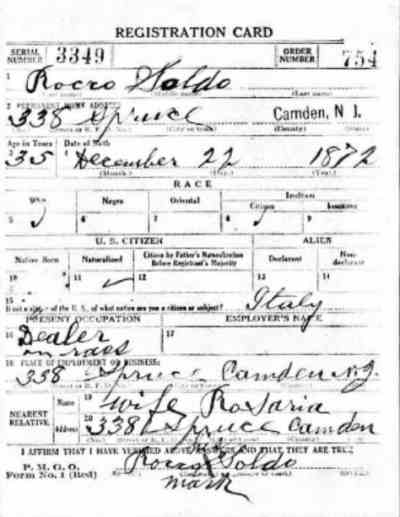 REGISTRATION CARD
SERIAL NUMBER 3349 ORDER NUMBER 754
1 Rocco Soldo
(Last name)
2 PERMANENT HOME ADDRESS
338 Spruce Camden, N J.
(City or town) (County) (State)
Age in Years Date of Birth
3 35 4 December 22 1872
(Month) (Day) (Year)
RACE
White Negro Oriental Indian
Citizen
5 6 7 8 9
U. S. CITIZEN ALIEN
Native Born Naturalized Citizen by Father's Naturalization Before Registrant's Majority Declarant Non-declarant
10 11 12 13 14
15 If not a citizen of the U. S. of what nation are you a citizen or subject? Italy
PRESENT OCCUPATION EMPLOYER'S NAME
16 Dealer 17
in rags
18 PLACE OF EMPLOYMENT OR BUSINESS:
338 Spruce Camden N.J.
NEAREST RELATIVE
Name 19 wife Rosaria
Address 20 338 Spruce Camden
I AFFIRM THAT I HAVE VERIFIED ABOVE ANSWERS AND THAT THEY ARE TRUE
P. M. G. O.
Form No. 1 (Red) Rocco Soldo
mark